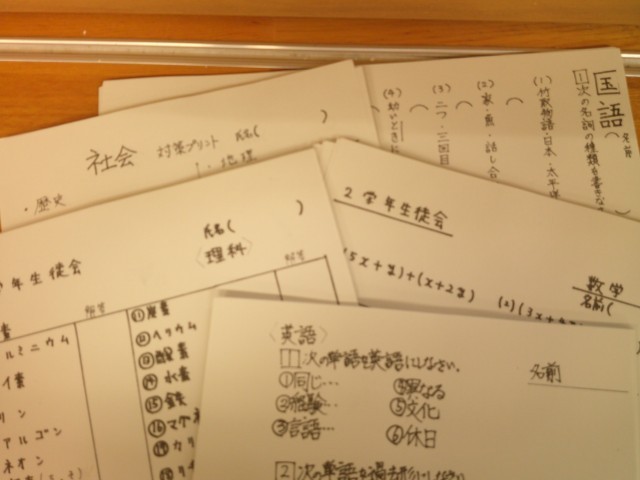 国語
名前
1 次の名詞の種類を書きな
(1) 竹取物語・日本・太平洋
(2) 家・魚・話し合
(3) 二つ・三回目
(4) 幼いときに
社会 対策プリント 氏名( )
・地理
・歴史
2学年生徒会
数学
名前(
(5x+
(2)(3x+
学年生徒会
氏名( )
〈理科〉
解答
解答
素
ルミニウム
イ素
リン
アルゴン
ネオン
⑪炭素
⑫ヘリウム
⑬酸素
⑭水素
⑮鉄
⑯マグネ
〈英語〉
名前
1 次の単語を英語にしなさい。
①同じ…
②経験…
③言語…
④異なる
⑤文化
⑥休日
2 次の単語を過去形にしなさい